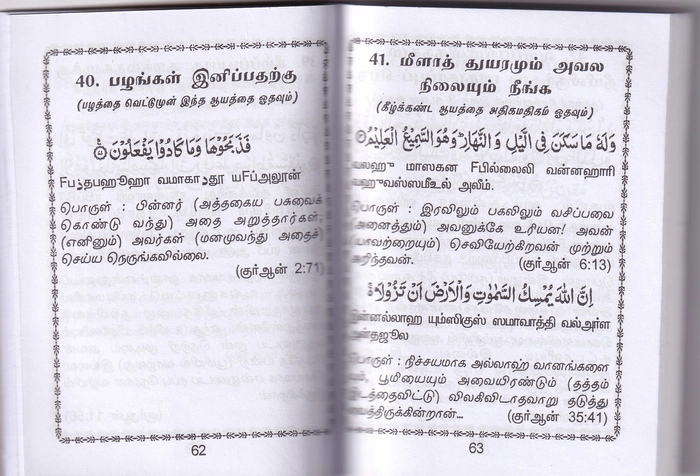 40. பழங்கள் இனிப்பதற்கு
(பழத்தை வெட்டுமுன் இந்த ஆயத்தை ஓதவும்)
فَذَبَحُوْهَا وَمَا كَادُوْا يَفْعَلُوْنَ
வமாகாதூ யFப்அலூன்
பொருள் : பின்னர் (அத்தகைய பசுவைக்
கொண்டு வந்து) அதை அறுத்தார்கள்;
(எனினும்) அவர்கள் (மனமுவந்து அதைச்)
செய்ய நெருங்கவில்லை.
(குர்ஆன் 2:71)
62
41. மீளாத் துயரமும் அவல
நிலையும் நீங்க
(கீழ்க்கண்ட ஆயத்தை அதிகமதிகம் ஓதவும்)
وَلَهٗ مَا سَكَنَ فِى الَّيْلِ وَ النَّهَارِ ؕ وَهُوَ السَّمِيْعُ الْعَلِيْمُ
வலஹு மாஸகன Fபில்லைலி வன்னஹாரி
வஹுவஸ்ஸமீஉல் அலீம்.
பொருள் : இரவிலும் பகலிலும் வசிப்பவை
அனைத்தும்) அவனுக்கே உரியன! அவன்
யாவற்றையும்) செவியேற்கிறவன் முற்றும்
அறிந்தவன். (குர்ஆன் 6:13)
اِنَّ اللّٰهَ يُمْسِكُ السَّمٰوٰتِ وَ الْاَرْضَ اَنْ تَزُوْلَا
இன்னல்லாஹ யும்ஸிகுஸ் ஸமாவாத்தி வல்அர்ள
அன்தஜூலா
பொருள் : நிச்சயமாக அல்லாஹ் வானங்களை
பூமியையும் அவையிரண்டும் (தத்தம்
இடத்தைவிட்டு) விலகிவிடாதவாறு தடுத்து
வைத்திருக்கின்றான்... (குர்ஆன் 35:41)
63